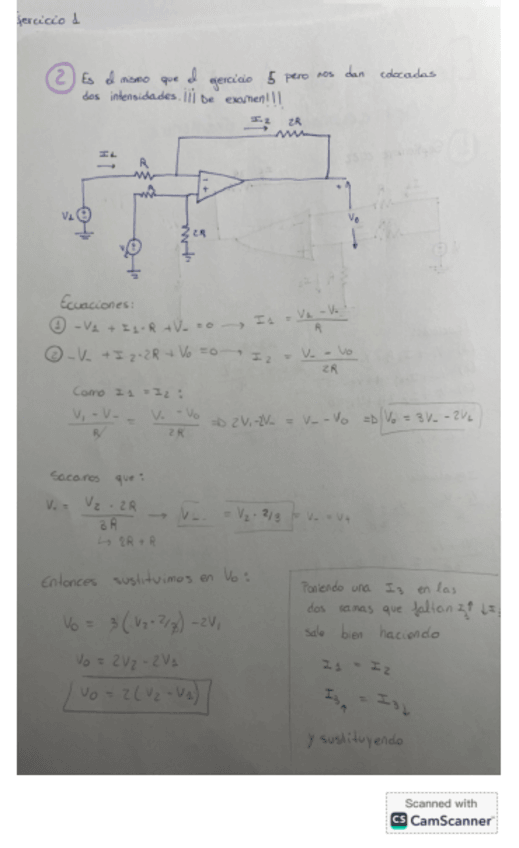 Ejercicio 1
2 Es el mismo que el ejercicio 5 pero nos dan colocadas
dos intensidades. ¡¡¡De examen!!!
I2 2R
I1 R
- +
R
V1
V2
2R
+
V0
Ecuaciones:
① -V1 + I1·R + V- = 0 → I1 = (V1 - V-)/R
② -V- + I2·2R + V0 = 0 → I2 = (V- - V0)/2R
Como I1 = I2:
(V1 - V-)/R = (V- - V0)/2R ⇒ 2V1-2V- = V- - V0 ⇒ V0 = 3V- - 2V1
Sacamos que:
V+ = (V2 · 2R)/3R → V- = V2 · 2/3 = V- = V+
↳ 2R + R
Entonces sustituimos en V0:
V0 = 3(V2·2/3) - 2V1
V0 = 2V2 - 2V1
V0 = 2(V2 - V1)
Poniendo una I3 en las
dos ramas que faltan I3↑ ↓I3
sale bien haciendo
I1 = I2
I3↑ = I3↓
y sustituyendo
Scanned with
CS CamScanner